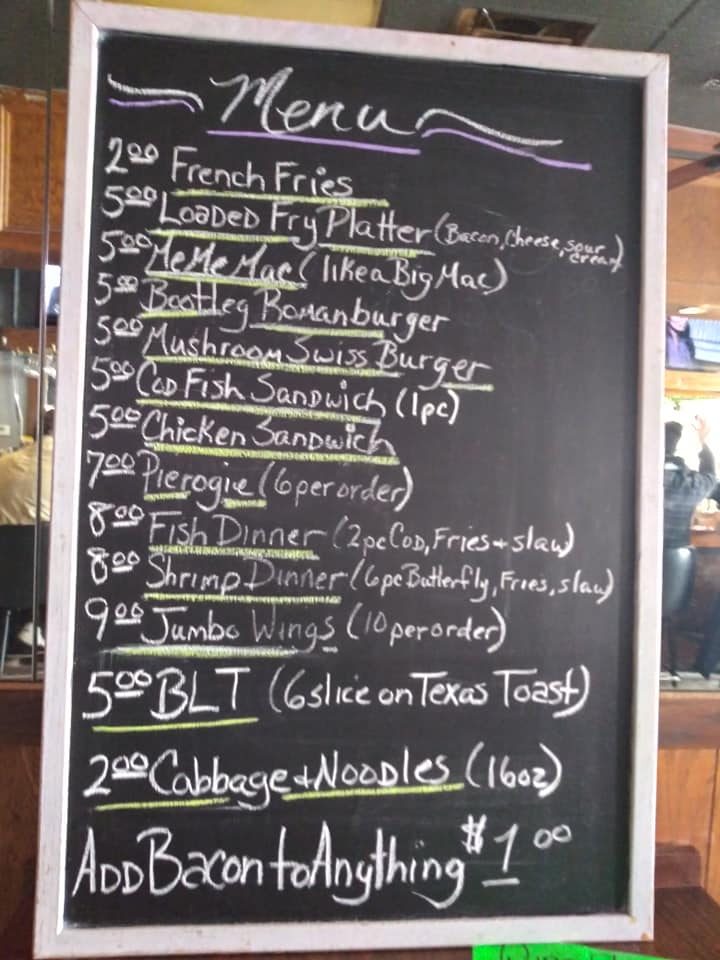 Menu
2.00 French Fries
5.00 Loaded Fry Platter (Bacon, Cheese, sour cream)
5.00 MeMe Mac (like a Big Mac)
5.00 Bootleg Romanburger
5.00 Mushroom Swiss Burger
5.00 Cod Fish Sandwich (1pc)
5.00 Chicken Sandwich
7.00 Pierogie (6 per order)
8.00 Fish Dinner (2pc Cod, Fries + slaw)
8.00 Shrimp Dinner (6pc Butterfly, Fries, slaw)
9.00 Jumbo Wings (10 per order)
5.00 BLT (6 slice on Texas Toast)
2.00 Cabbage + Noodles (16oz)
Add Bacon to Anything $1.00